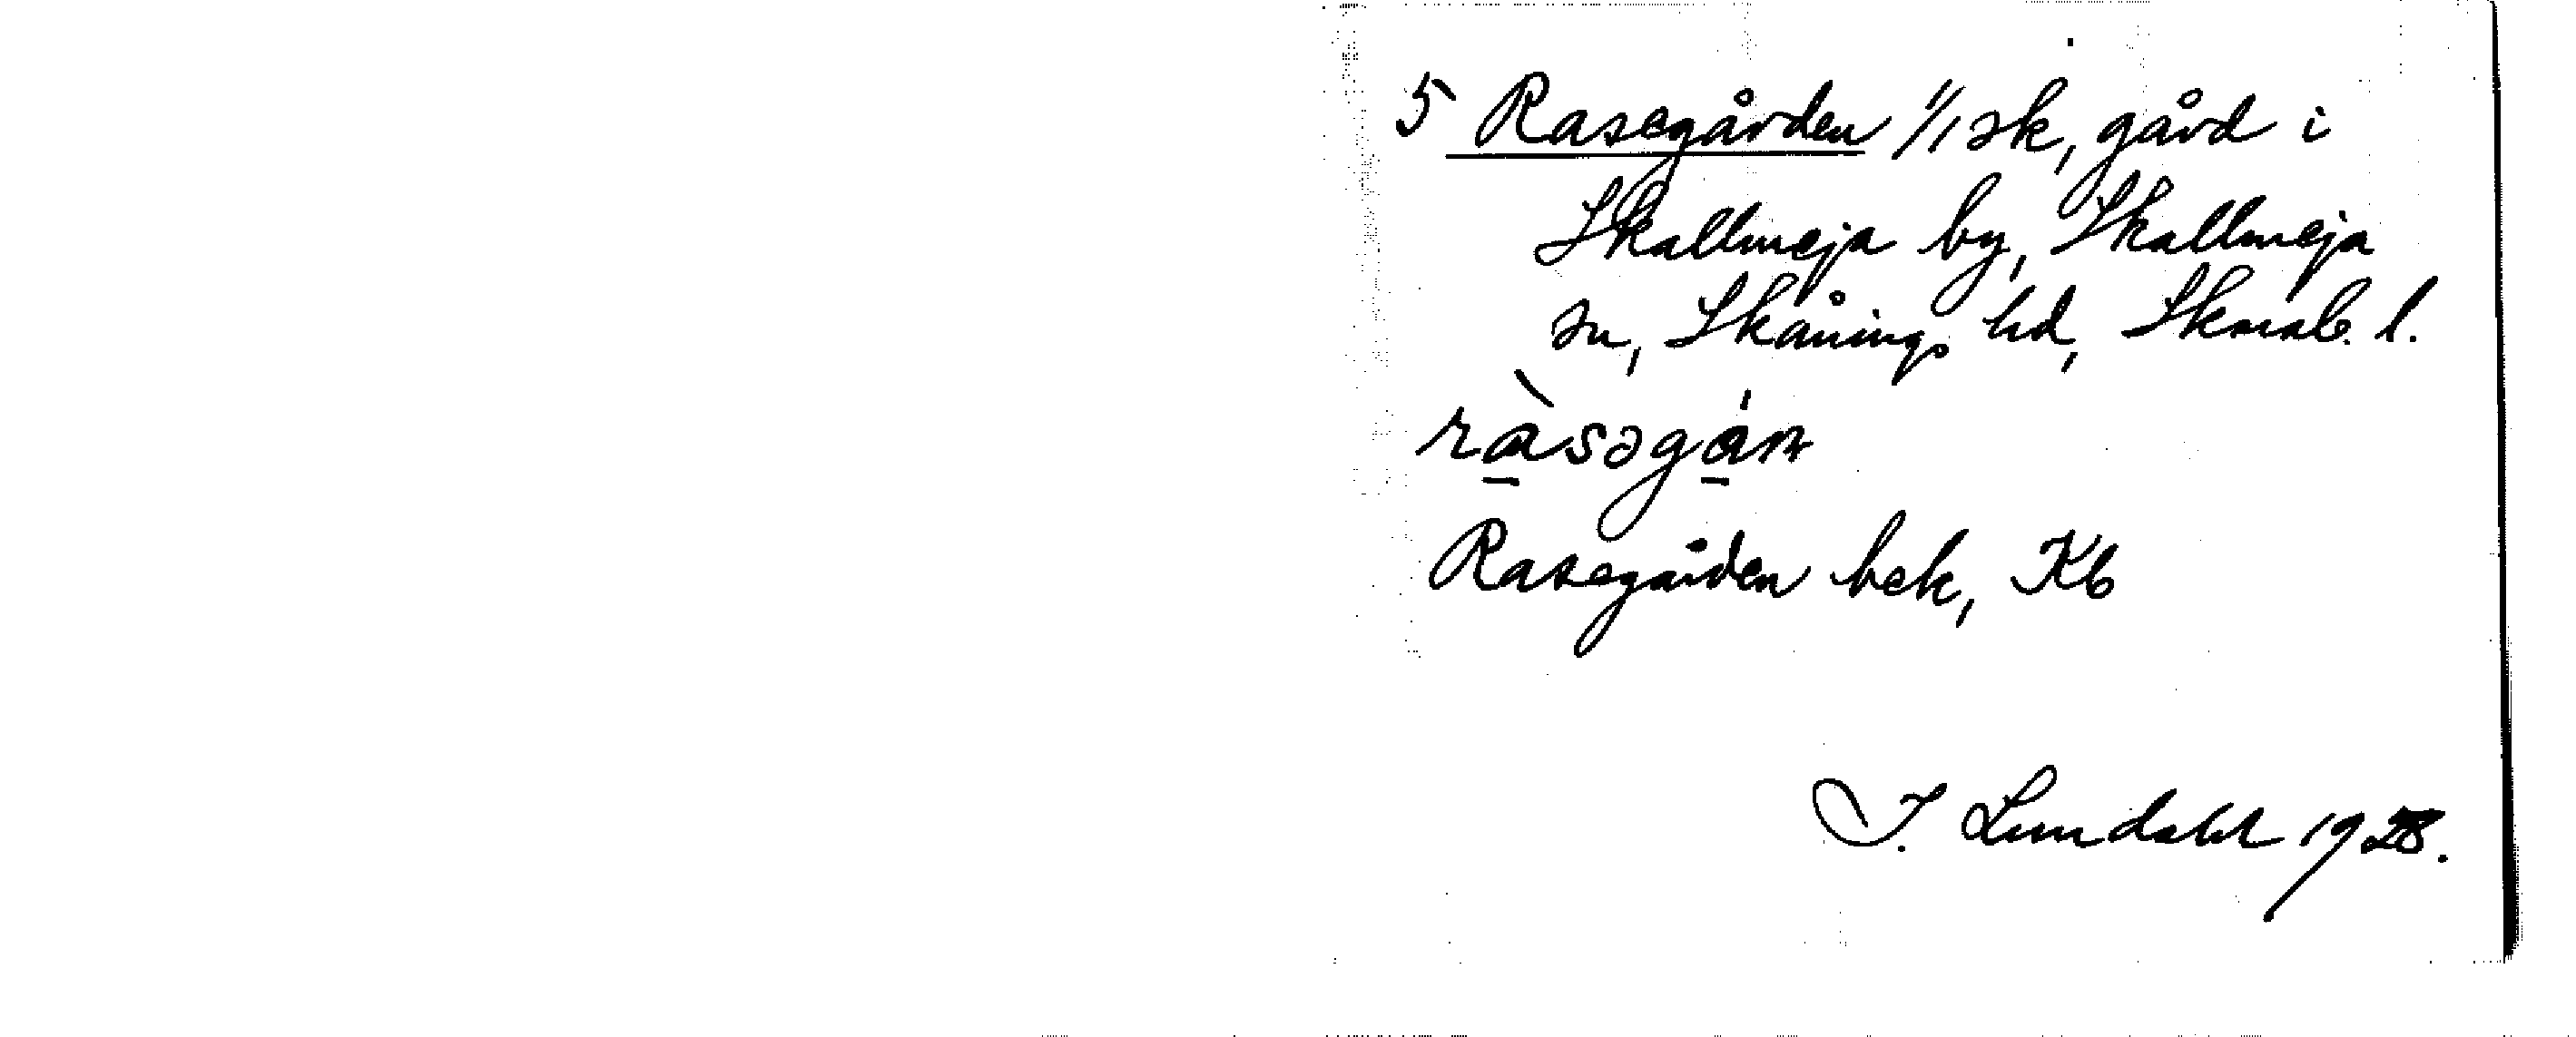 5 Rasegården 1/1 sk, gård i
Skallmeja by, Skallmeja
sn, Skånings hd, Skarab. l.
ràsəgán
Rasegården bek, Kb
I. Lundahl 1928.